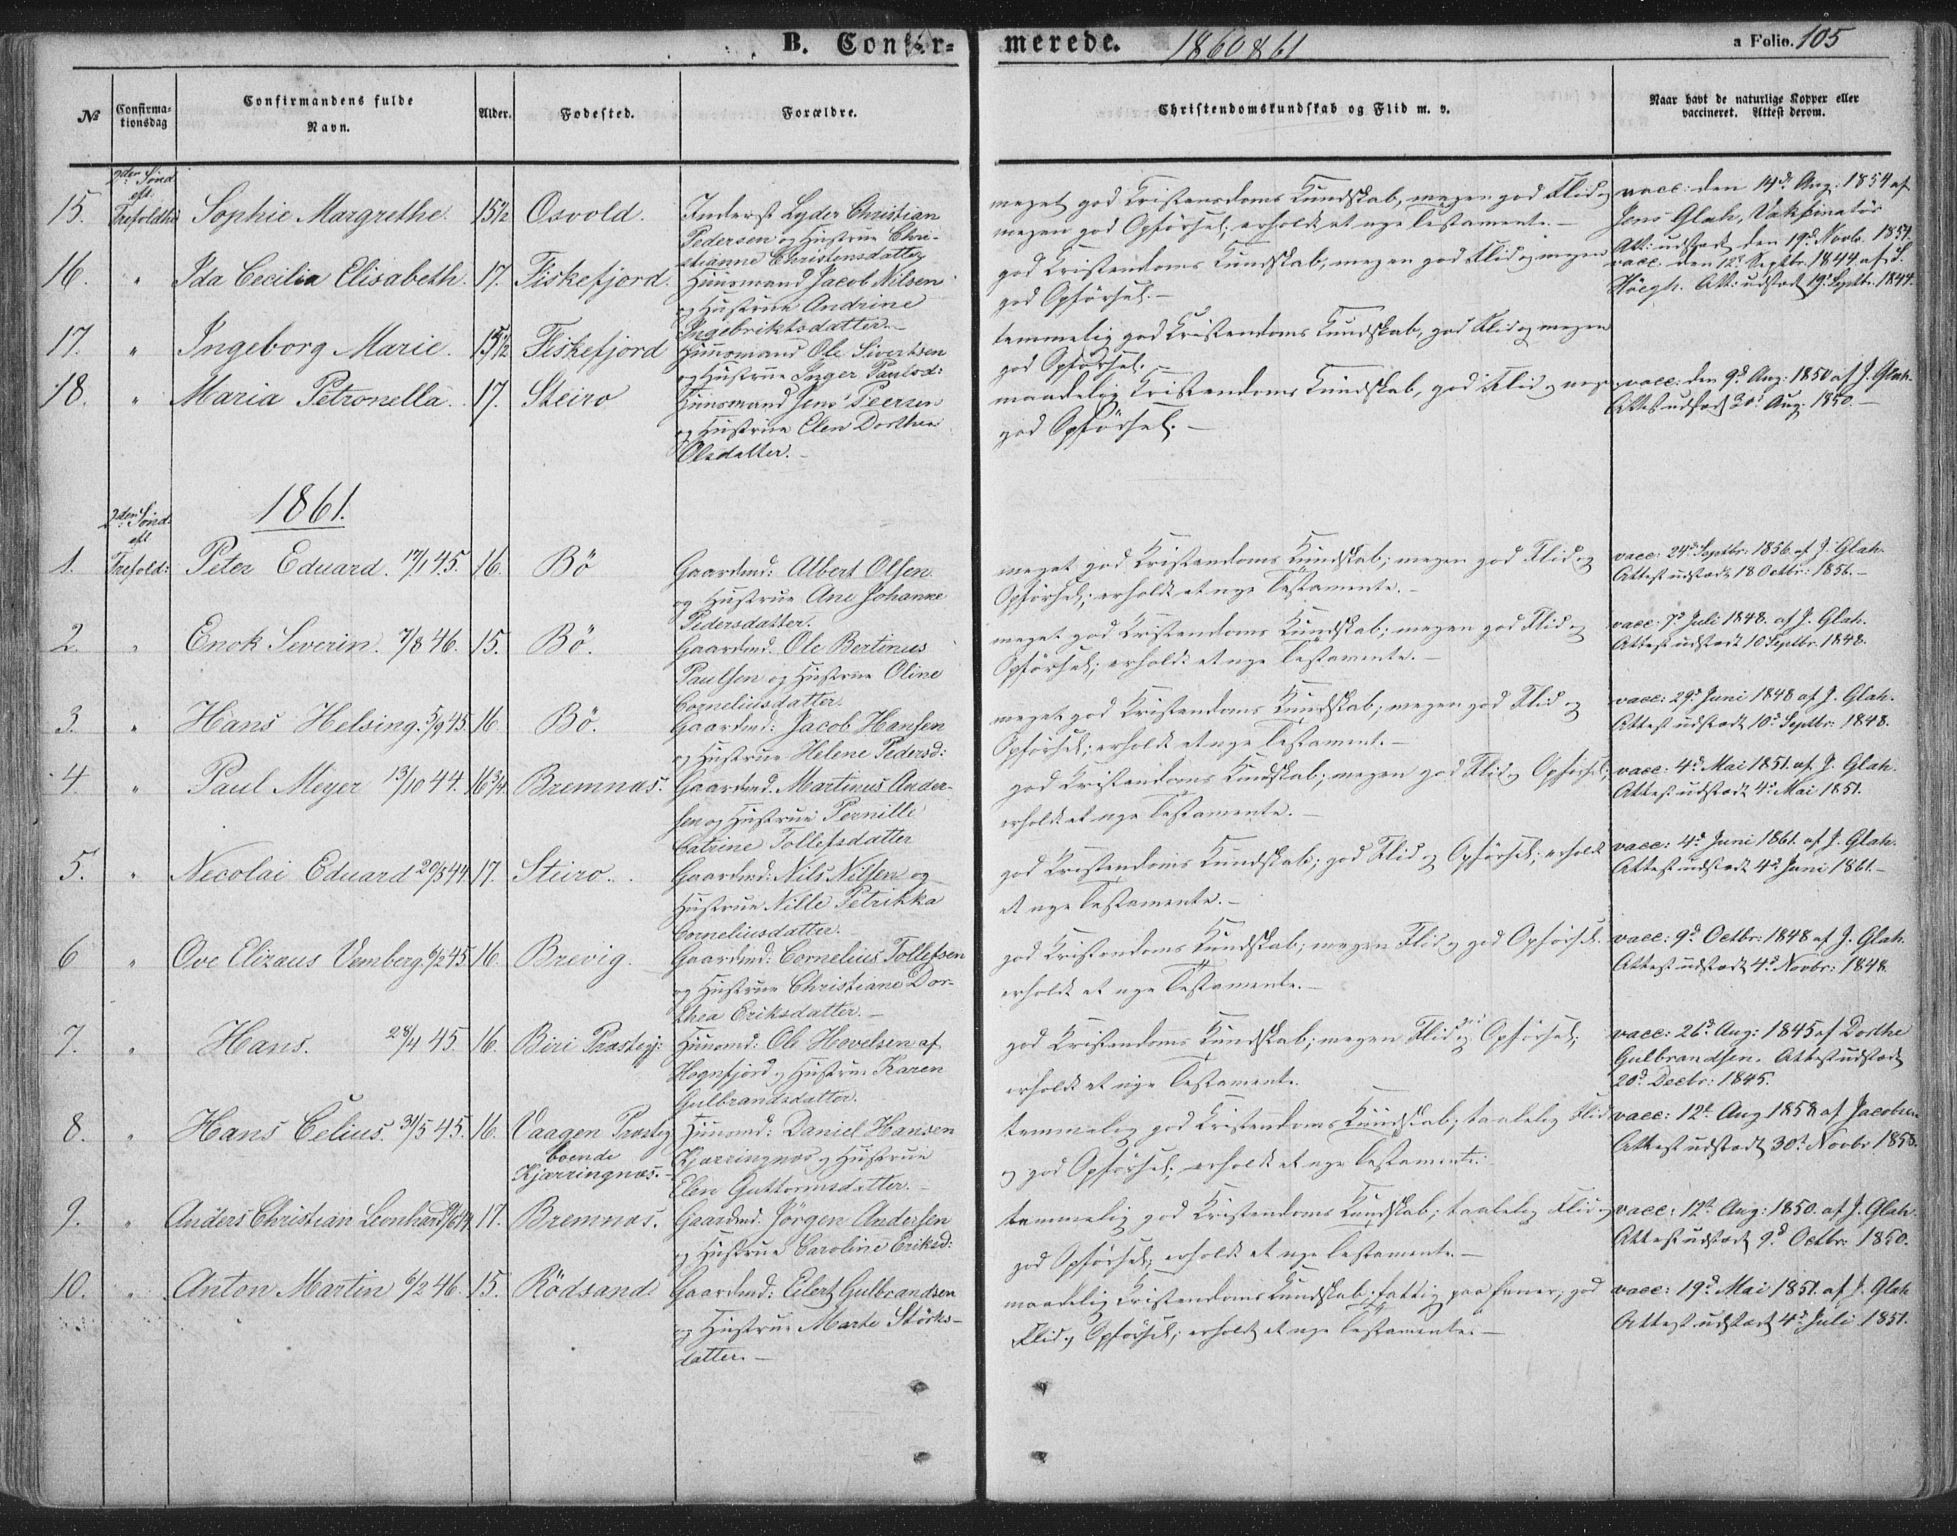 B. Confir-
merede. 1860 & 61
a Folio. 105
No
Confirma-
tionsdag
Confirmandens fulde
Navn.
Alder.
Fødested.
Forældre.
Christendomskundskab og Flid m. v.
Naar havt de naturlige Kopper eller
vaccineret. Attest derom.
2den Sönd.
eft.
15. Trefoldh. Sophie Margrethe. 15½ Osvold. Inderst Lyder Christian
Pedersen og Hustrue Chri-
stianne Christensdatter
meget god Kristendoms Kundskab, megen god Flid og
megen god Opförsel; erholdt et nye Testamente. –
vacc: den 14d. Aug: 1854 af
Jens Glah, Vaksinatör
Att: udstedt den 19d. Novbr. 1854.
16. " Ida Cecilia Elisabeth. 17. Fiskefjord. Huusmand Jacob Nilsen
og Hustrue Andrine
Ingebriktsdatter. –
god Kristendoms Kundskab, megen god Flid og megen
god Opförsel. –
vacc. den 12d. Septbr. 1844 af S.
Höegh. Att: udstedt 19d. Septbr. 1844.
17. " Ingeborg Marie. 15½ Fiskefjord Huusmand Ole Sivertsen
og Hustrue Inger Paulsd:
temmelig god Kristendoms Kundskab, god Flid og megen
god Opförsel. –
18. " Maria Petronella. 17. Steiro Huusmand Jens Peersen
og Hustrue Elen Dorthea
Olsdatter. –
maadelig Kristendoms Kundskab, god Flid og megen
god Opförsel. –
vacc: den 9d. Aug: 1850 af J. Glah.
Attest udstedt 30d. Aug: 1850. –
1861.
2den Sönd.
eft.
1. Trefold: Peter Eduard. 17/1 45. 16. Bö Gaardmd: Albert Olsen
og Hustrue Ane Johanne
Pedersdatter.
meget god Kristendoms Kundskab; megen god Flid og
Opförsel; erholdt et nye Testamente. –
vacc: 24d. Septbr: 1856. af J. Glah.
Attest udstedt 18 Octbr: 1856. –
2. " Enok Severin. 7/8 46. 15. Bö. Gaardmd. Ole Bertinus
Paulsen og Hustrue Oline
Corneliusdatter.
meget god Kristendoms Kundskab; megen god Flid og
Opförsel; erholdt et nye Testamente. –
vacc. 7d. Juli 1848. af J. Glah.
Attest udstedt 10 Septbr. 1848.
3. " Hans Helsing. 5/9 45. 16. Bö. Gaardmd: Jacob Hansen
og Hustrue Helene Pedersd:
meget god Kristendoms Kundskab; megen god Flid og
Opförsel; erholdt et nye Testament. –
vacc: 29d. Juni 1848 af J. Glah.
Attest udstedt 10d. Septbr. 1848.
4 " Paul Meyer 13/10 44. 16¾ Bremnæs. Gaardmd. Martinus Ander-
sen og Hustrue Pernille
Catrine Tollefsdatter
god Kristendoms Kundskab; megen god Flid og Opförsel;
erholdt et nye Testamente. –
vacc: 4d. Mai 1851. af J. Glah.
Attest udstedt 4d. Mai 1851.
5. " Necolai Eduard 20/5 44. 17. Steiro. Gaardmd: Nils Nilsen og
Hustrue Nille Petrikka
Corneliusdatter.
god Kristendoms Kundskab; god Flid og Opförsel; erholdt
et nye Testamente. –
vacc: 4d. Juni 1861. af J. Glah.
Attest udstedt 4d. Juni 1861. –
6 " Ove Elizæus Vemberg. 6/2 45. 16. Brevig. Gaardmd: Cornelius Tollefsen
og Hustrue Christiane Dor-
thea Eriksdatter. –
god Kristendoms Kundskab; megen Flid og god Opförsel.
erholdt et nye Testamente. –
vacc: 9d. Octbr: 1848 af J. Glah.
Attest udstedt 4d. Novbr: 1848.
7. " Hans. 28/4 45. 16. Biri Præstegj: Huusmd: Ole Hovelsen af
Hognfjord og Hustrue Karen
Gulbrandsdatter.
god Kristendoms Kundskab; megen Flid og Opförsel;
erholdt et nye Testamente.
vacc: 26d. Aug: 1845 af Dorthe
Gulbrandsen. Attest udstedt
20d. Decbr: 1845.
8. " Hans Celius. 31/5 45. 16. Vaagen Præsteg Huusmd: Daniel Hansen
boende
Kjærringnæs. – Kjærringnæs og Hustrue
Elen Guttormsdatter. –
temmelig god Kristendoms Kundskab; taalelig Flid
og god Opförsel; erholdt et nye Testamente.
vacc: 12d. Aug 1858 af Jacobsen
Attest udstedt 30d. Novbr 1858.
9. " Anders Christian Leonhard 17. Bremnæs. Gaardmd. Jörgen Andersen
og Hustrue Caroline Eriksd:
temmelig god Kristendoms Kundskab; taalelig Flid og
god Opförsel; erholdt et nye Testamente. –
vacc: 12d. Aug: 1850. af J. Glah.
Attest udstedt 9d. Octbr: 1850.
10. " Anton Martin 6/2 46. 15. Rödsand Gaardmd: Eilert Gulbrandsen
og Hustrue Marte Störks-
datter. –
maadelig Kristendoms Kundskab; god
Flid og Opförsel; erholdt et nye Testamente. –
vacc: 19d. Mai 1851. af J. Glah
Attest udstedt 4d. Juli 1851.